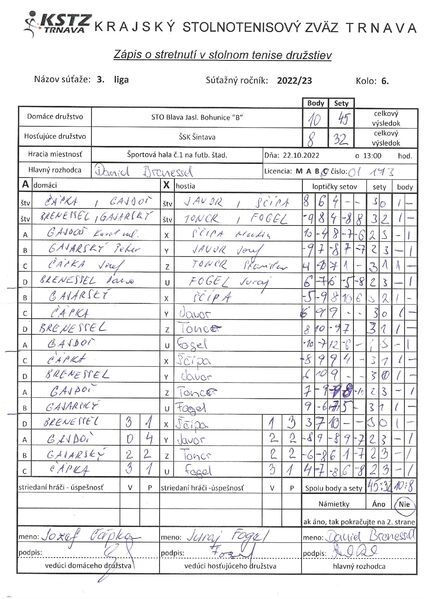 KSTZ TRNAVA KRAJSKÝ STOLNOTENISOVÝ ZVÄZ TRNAVA
Zápis o stretnutí v stolnom tenise družstiev
Názov súťaže: 3. liga Súťažný ročník: 2022/23 Kolo: 6.
Body Sety
Domáce družstvo STO Blava Jasl. Bohunice "B" 10 45 celkový výsledok
Hosťujúce družstvo ŠSK Šintava 8 32 celkový výsledok
Hracia miestnosť Športová hala č.1 na futb. štad. Dňa: 22.10.2022 o 13:00 hod.
Hlavný rozhodca Daniel Brenessel Licencia: M A B C číslo: 01 173
A domáci X hostia loptičky setov sety body
štv ČÁPKA, GAJDOŠ štv JAVOR, ŠČÍPA 8 6 4 - - 3 0 1 -
štv BRENESSEL, GAJARSKÝ štv TONCR, FOGEL -9 8 4 -8 8 3 2 1 -
A GAJDOŠ X ŠČÍPA 2 3 - 1
B GAJARSKÝ Peter Y JAVOR Jozef -9 7 -8 7 -7 2 3 - 1
C ČÁPKA Jozef Z TONCR 3 1 1 -
D BRENESSEL U FOGEL Juraj 6 -7 6 -5 -8 2 3 - 1
B GAJARSKÝ X ŠČÍPA -5 -9 8 10 6 3 2 1 -
C ČÁPKA Y Javor 6 9 9 3 0 1 -
D BRENESSEL Z Toncr 3 1 1 -
A GAJDOŠ U Fogel - 1
C ČÁPKA X Ščípa -8 9 9 4 3 1 1 -
D BRENESSEL Y Javor 3 0 1 -
A GAJDOŠ Z Toncr 2 3 - 1
B GAJARSKÝ U Fogel 3 1 1 -
D BRENESSEL 3 1 X Ščípa 1 3 3 0 1 -
A GAJDOŠ 0 4 Y Javor 2 2 -8 9 -8 9 -7 2 3 - 1
B GAJARSKÝ 2 2 Z Toncr 2 2 -6 -8 6 1 -7 2 3 - 1
C ČÁPKA 3 1 U Fogel 3 1 4 -7 -8 6 -8 2 3 - 1
striedaní hráči - úspešnosť V P striedaní hráči - úspešnosť V P Spolu body a sety 45:32 10:8
Námietky Áno Nie
ak áno, tak pokračujte na 2. strane
meno: Jozef Čápka meno: Juraj Fogel meno: Daniel Brenessel
podpis: podpis: podpis:
vedúci domáceho družstva vedúci hosťujúceho družstva hlavný rozhodca